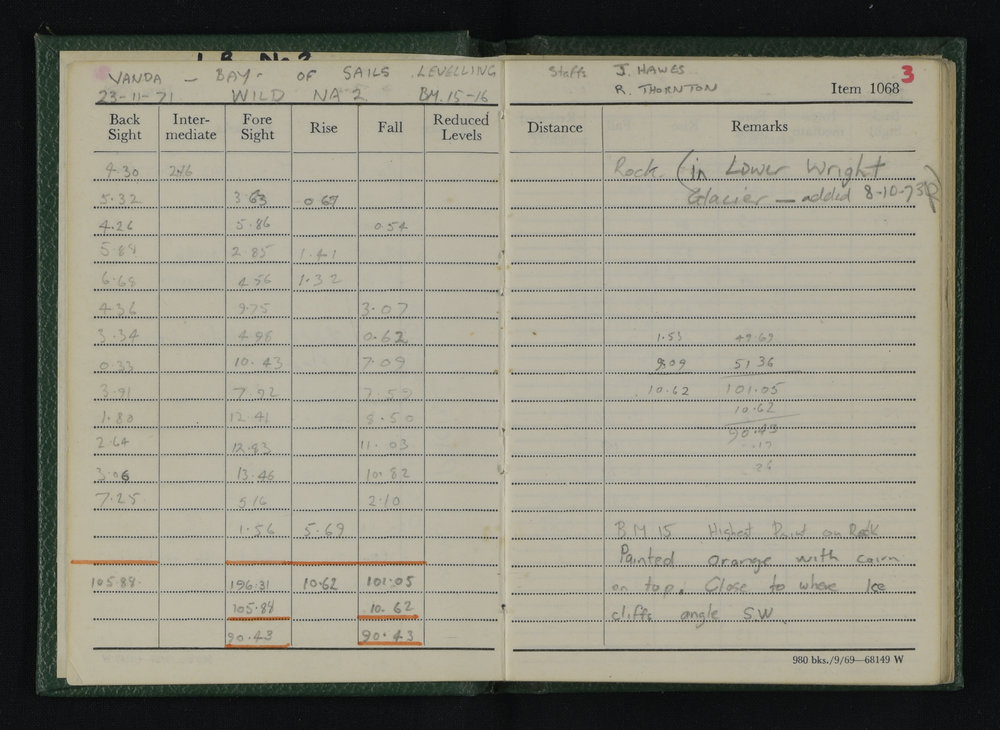 L B No 2
VANDA - BAY - OF SAILS LEVELLING
23-11-71 WILD NA2 BM. 15-16
Back Sight Inter-mediate Fore Sight Rise Fall Reduced Levels
4.30 2.46
5.32 3.63 0.67
4.26 5.86 0.54
5.88 2.85 1.41
6.68 4.56 1.32
4.36 9.75 3.07
3.34 4.98 0.62
0.33 10.43 7.09
3.91 7.92 7.59
1.80 12.41 8.50
2.64 12.83 11.03
3.06 13.46 10.82
7.25 5.16 2.10
1.56 5.69
105.88 196.31 10.62 101.05
105.88 10.62
90.43 90.43
Staffs J. HAWES
R. THORNTON
Item 1068
3
Distance Remarks
Rock (in Lower Wright
Glacier - added 8-10-73
1.53 49.69
9.09 51.36
10.62 101.05
10.62
90.43
.17
26
BM 15 Highest Point on Rock
Painted orange with cairn
on top. Close to where Ice
cliffs angle SW.
980 bks./9/69—68149 W